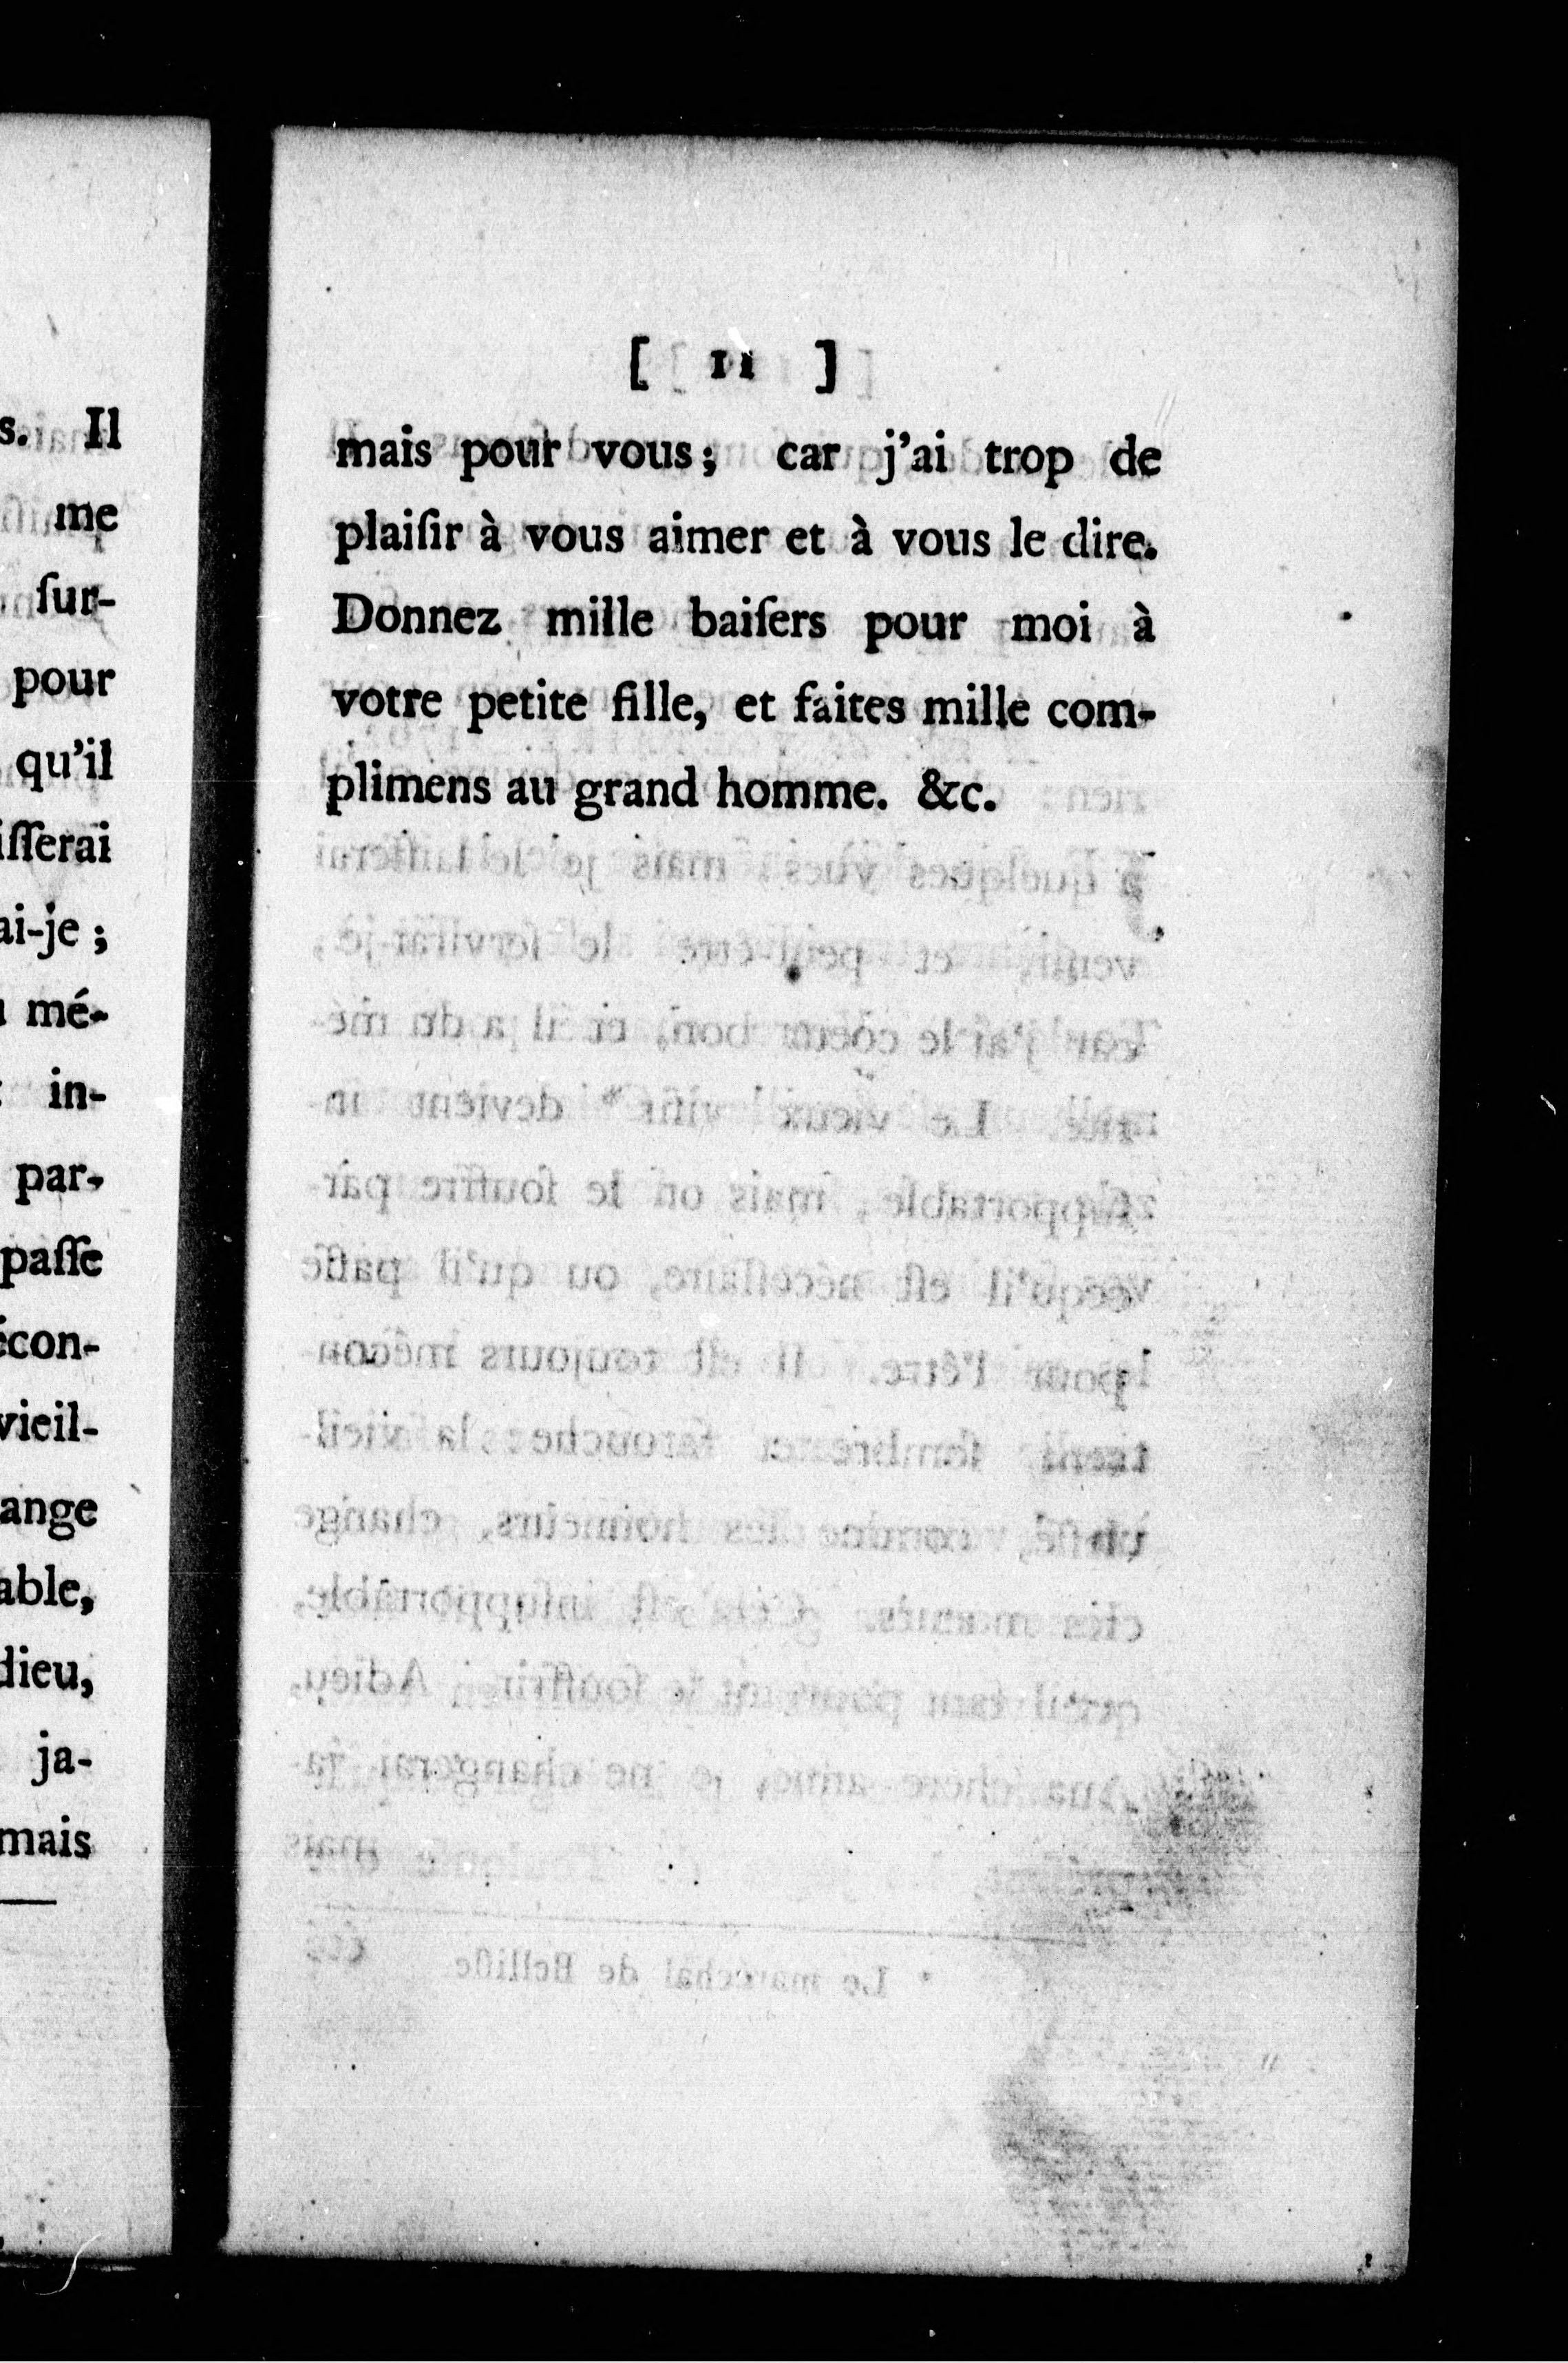 s. Il
me
ſur-
pour
qu'il
iſſerai
ai-je ;
mé-
in-
par-
paſſe
écon-
vieil-
ange
able,
dieu,
ja-
mais
[ 11 ]
mais pour vous ; car j'ai trop de
plaiſir à vous aimer et à vous le dire.
Donnez mille baiſers pour moi à
votre petite fille, et faites mille com-
plimens au grand homme. &c.